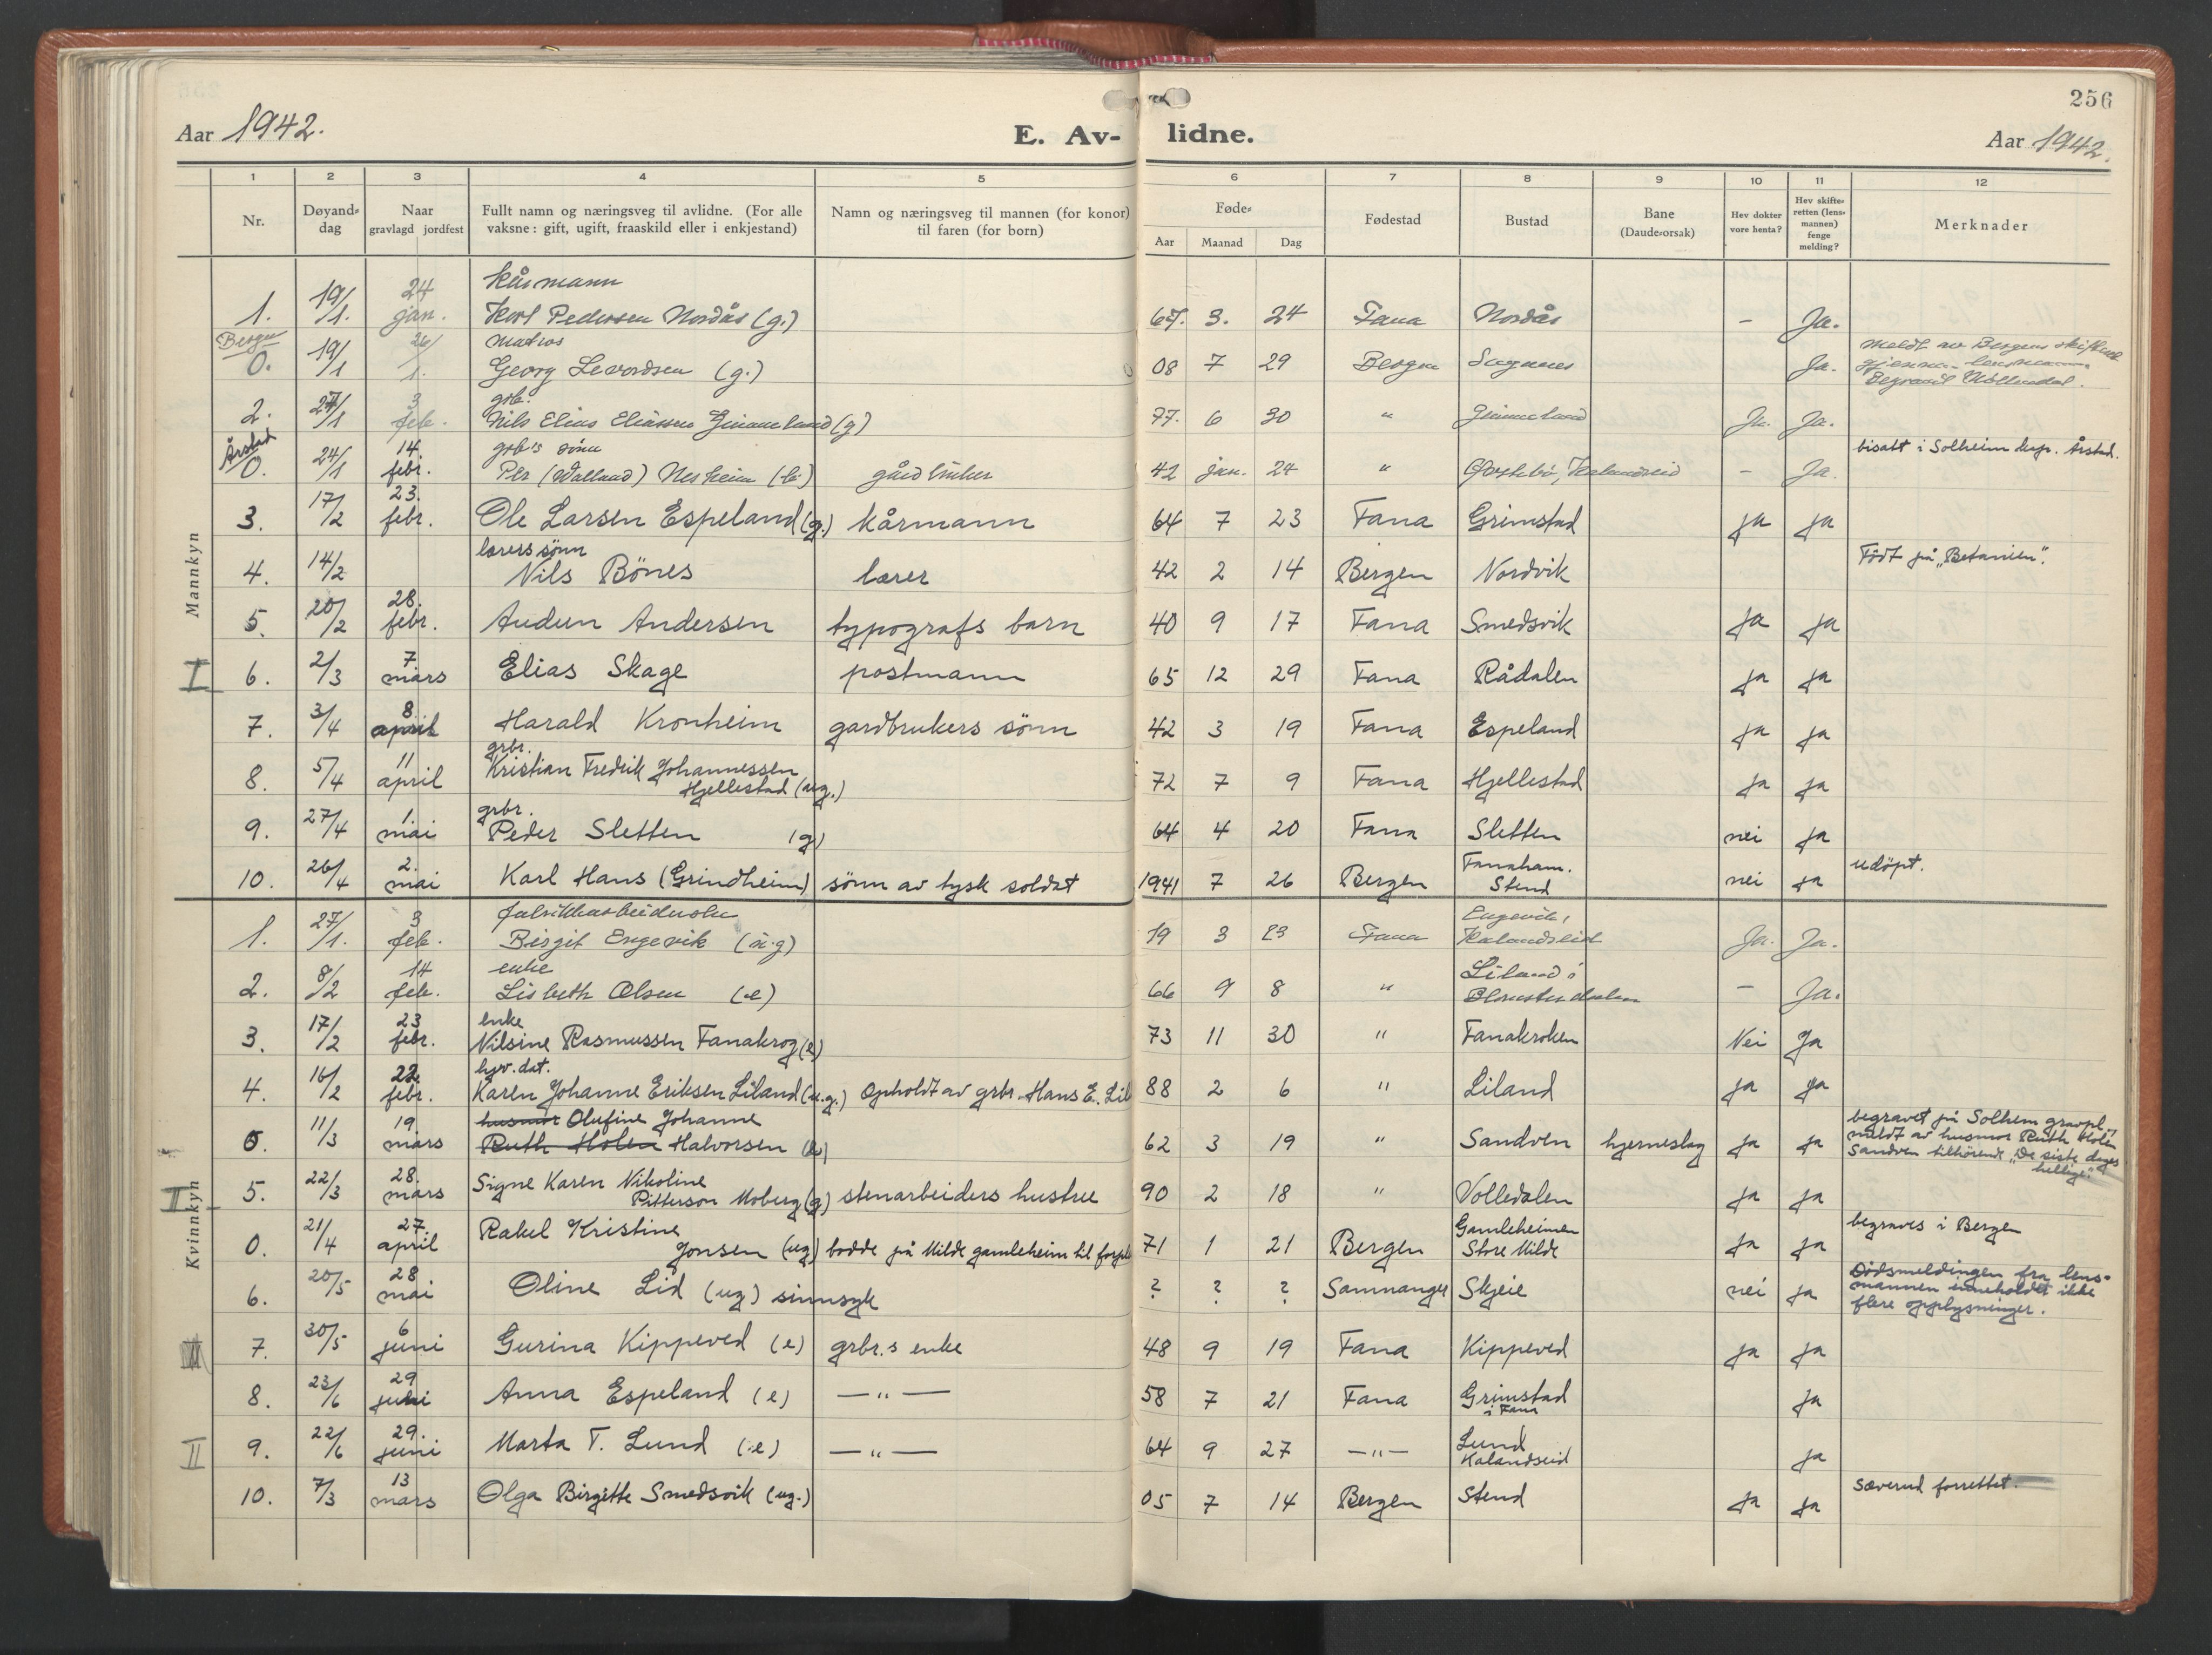 256
Aar 1942. E. Av- lidne. Aar 1942.
1 2 3 4 5 6 7 8 9 10 11 12
Nr. Døyand-dag Naar gravlagd jordfest Fullt namn og næringsveg til avlidne. (For alle vaksne: gift, ugift, fraaskild eller i enkjestand) Namn og næringsveg til mannen (for konor) til faren (for born) Føde- Aar Maanad Dag Fødestad Bustad Bane (Daude-orsak) Hev dokter vore henta? Hev skifte-retten (lens-mannen) fenge melding? Merknader
Mannkyn
1. 19/1. 24 jan. Kårmann Pedersen Nordås (g.) 67. 3. 24 Fana Nordås - Ja.
Bergen 0. 19/1 26/1. Matros Georg (g.) 08 7 29 Bergen Ja. Meldt av Bergens
2. 27/1 3 feb. grb. Nils Elias Eliassen (g) 77. 6 30 " Ja. Ja.
Årstad 0. 24/1 14 febr. grb's sönn Per (Walland) Nesheim 42 jan. 24 " Kalandseid - Ja. bisatt i Solheim kap. Årstad.
3. 17/2 23. febr. Ole Larsen Espeland (g.) kårmann 64 7 23 Fana Grimstad ja ja
4. 14/2 lærers sönn Nils Bönes lærer 42 2 14 Bergen Nordvik Födt på „Betanien".
5. 20/2 28. febr. Audun Andersen typografs barn 40 9 17 Fana Smedsvik ja ja
I 6. 2/3 7. mars Elias Skage postmann 65 12 29 Fana Rådalen ja ja
7. 3/4 8. april Harald Kronheim gardbrukers sönn 42 3 19 Fana Espeland ja ja
8. 5/4 11 april grbr. Kristian Fredrik Johannessen Hjellestad (ug.) 72 7 9 Fana Hjellestad ja ja
9. 27/4 1. mai grbr. Peder Sletten (g) 64 4 20 Fana Sletten nei ja
10. 26/4 2. mai Karl Hans (Grindheim) sönn av tysk soldat 1941 7 26 Bergen Fanaham. Stend nei ja udöpt.
Kvinnkyn
1. 27/1. 3 feb. Birgit Engevik (u.g) 19 3 23 Fana Engevik, Kalandseid Ja. Ja.
2. 8/2 14 feb. enke Lisbeth Olsen (e) 66 9 8 " Liland i - Ja.
3. 17/2 23 febr. enke Nilsine Rasmussen Fanakrog (e) 73 11 30 " Fanakroken Nei Ja
4. 16/2 22 febr. hjv. dat. Karen Johanne Eriksen Liland (u.g.) Opholdt av grbr. Hans E. Lil 88 2 6 " Liland ja ja
0 11/3 19. mars husmor Olufine Johanne Ruth Holen Halvorsen (e) 62 3 19 " Sandven hjerneslag ja ja begravet på Solhem gravpl. meldt av husmor Ruth Holen Sandven tilhörende „De siste dages hellige."
II 5. 22/3 28. mars Signe Karen Nikoline Pitterson Moberg (g) stenarbeiders hustru 90 2 18 " Volledalen ja ja
0. 21/4 27. april Rakel Kristine Jonsen (ug) bodde på Milde gamleheim til forple 71 1 21 Bergen Gamleheimen Store Milde ja ja begraves i Bergen
6. 20/5 28 mai Oline Lid (ug) sinnsyk ? ? ? Samnanger Skjeie nei ja Dödsmeldingen fra lens-mannen inneholdt ikke flere opplysninger.
7. 30/5 6 juni Gurina Kippeved (e) grbr.s enke 48 9 19 Fana Kippeved ja ja
8. 23/6 29 juni Anna Espeland (e) —"— 58 7 21 Fana Grimstad i Fana ja
II 9. 22/6 29. juni Marta T. Lund (e) —"— 64 9 27 —"— Lund Kalandseid ja
10. 7/3 13 mars Olga Birgitte Smedsvik (ug.) 05 7 14 Bergen Stend ja ja Sæverud forrettet.